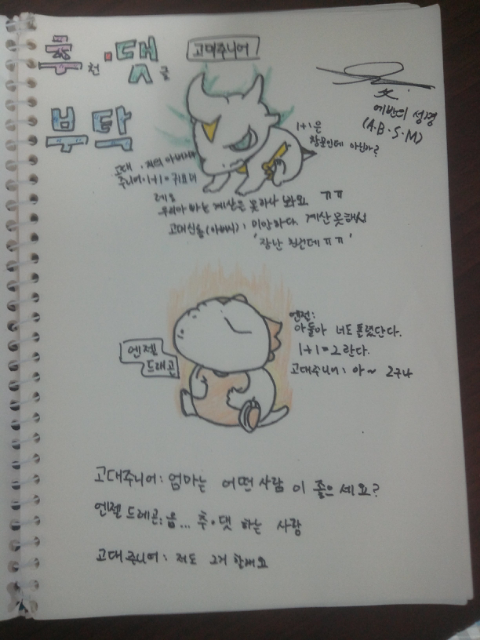 추천·댓글
부탁
고대주니어
에반의 성명
(A.B.S.M)
1+1은
창문인데 아닌가?
고대 . 저의 아빠께서
주니어 . 1+1=귀요미
래요
우리아빠는 계산을 못하나 봐요 ㅠㅠ
고대신룡(아빠) : 미안하다. 계산 못해서
'장난 친건데 ㅠㅠ'
엔젤
드래곤
엔젤:
아들아 너도 틀렸단다.
1+1=2란다.
고대주니어 : 아~ 2구나
고대주니어 : 엄마는 어떤 사람이 좋으세요?
엔젤드래곤 : 음... 추·댓 하는 사람
고대주니어 : 저도 그거 할래요